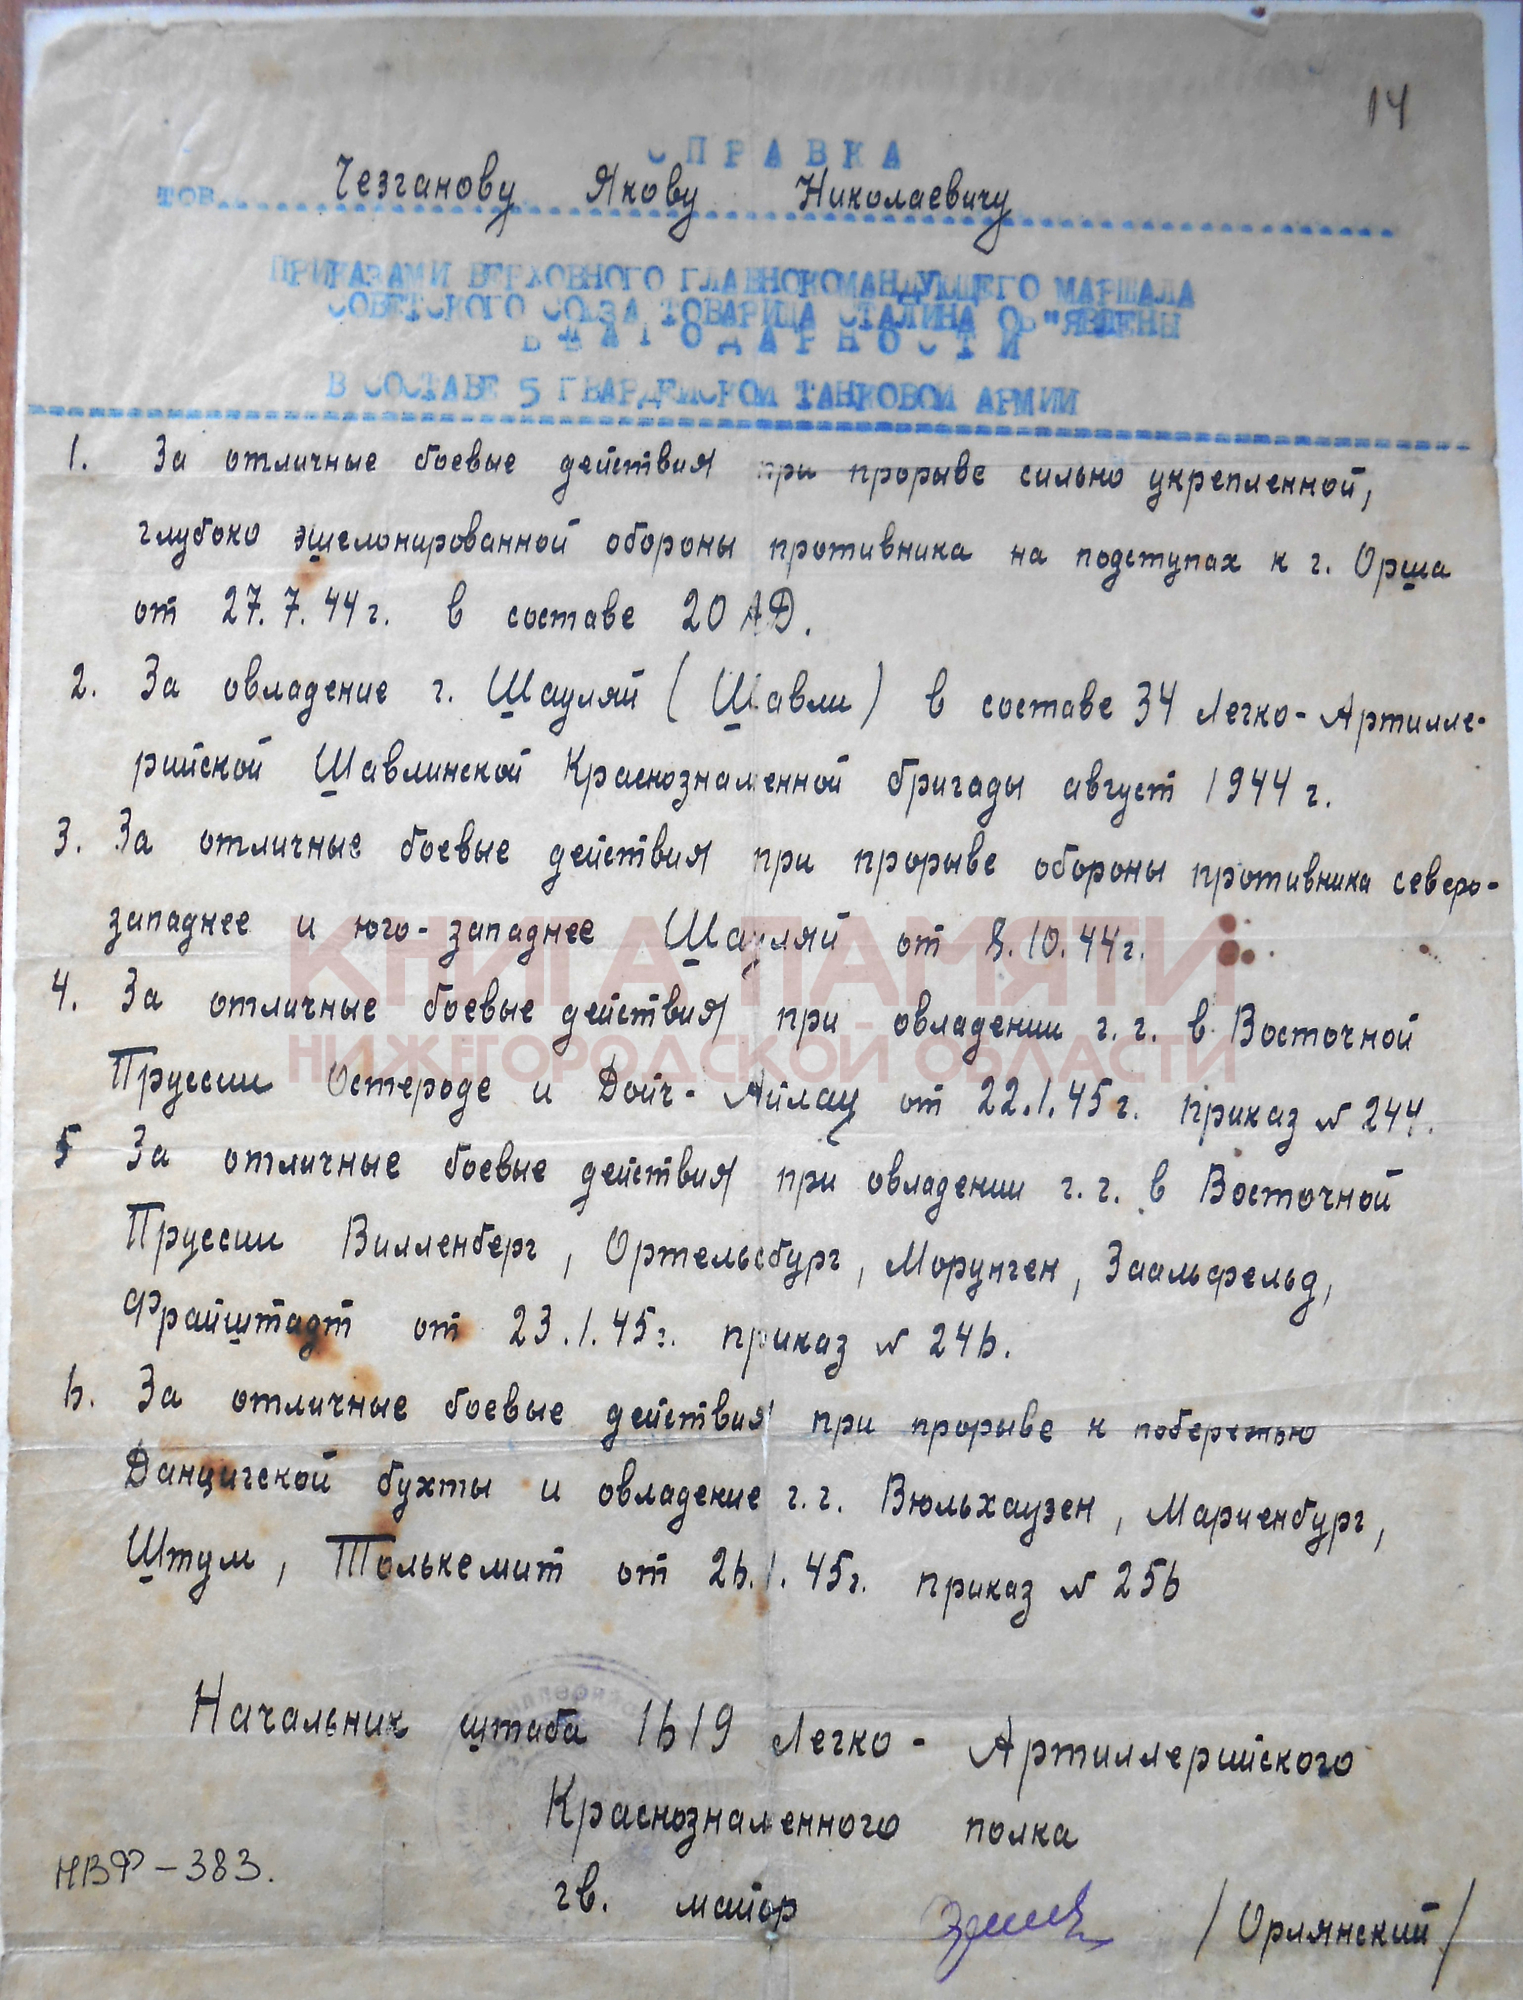 14
СПРАВКА
тов. Чезганову Якову Николаевичу
ПРИКАЗАМИ ВЕРХОВНОГО ГЛАВНОКОМАНДУЮЩЕГО МАРШАЛА
СОВЕТСКОГО СОЮЗА ТОВАРИЩА СТАЛИНА ОБ"ЯВЛЕНЫ
БЛАГОДАРНОСТИ
В СОСТАВЕ 5 ГВАРДЕЙСКОЙ ТАНКОВОЙ АРМИИ
1. За отличные боевые действия при прорыве сильно укрепленной,
глубоко эшелонированной обороны противника на подступах к г. Орша
от 27.7.44г. в составе 20 АД.
2. За овладение г. Шауляй (Шавли) в составе 34 Легко-Артилле-
рийской Шавлинской Краснознаменной бригады август 1944 г.
3. За отличные боевые действия при прорыве обороны противника северо-
западнее и юго-западнее Шауляй от 8.10.44г.
КНИГА ПАМЯТИ
4. За отличные боевые действия при овладении г.г. в Восточной
НИЖЕГОРОДСКОЙ ОБЛАСТИ
Пруссии Остероде и Дойч-Айлау от 22.1.45г. приказ № 244.
5 За отличные боевые действия при овладении г.г. в Восточной
Пруссии Вилленберг, Ортельсбург, Морунген, Заальфельд,
Фрайштадт от 23.1.45г. приказ № 246.
6. За отличные боевые действия при прорыве к побережью
Данцигской бухты и овладение г.г. Вюльхаузен, Мариенбург,
Штум, Толькемит от 26.1.45г. приказ № 256
Начальник штаба 1619 Легко-Артиллерийского
Краснознаменного полка
гв. майор /Орлянский/
НВФ-383.